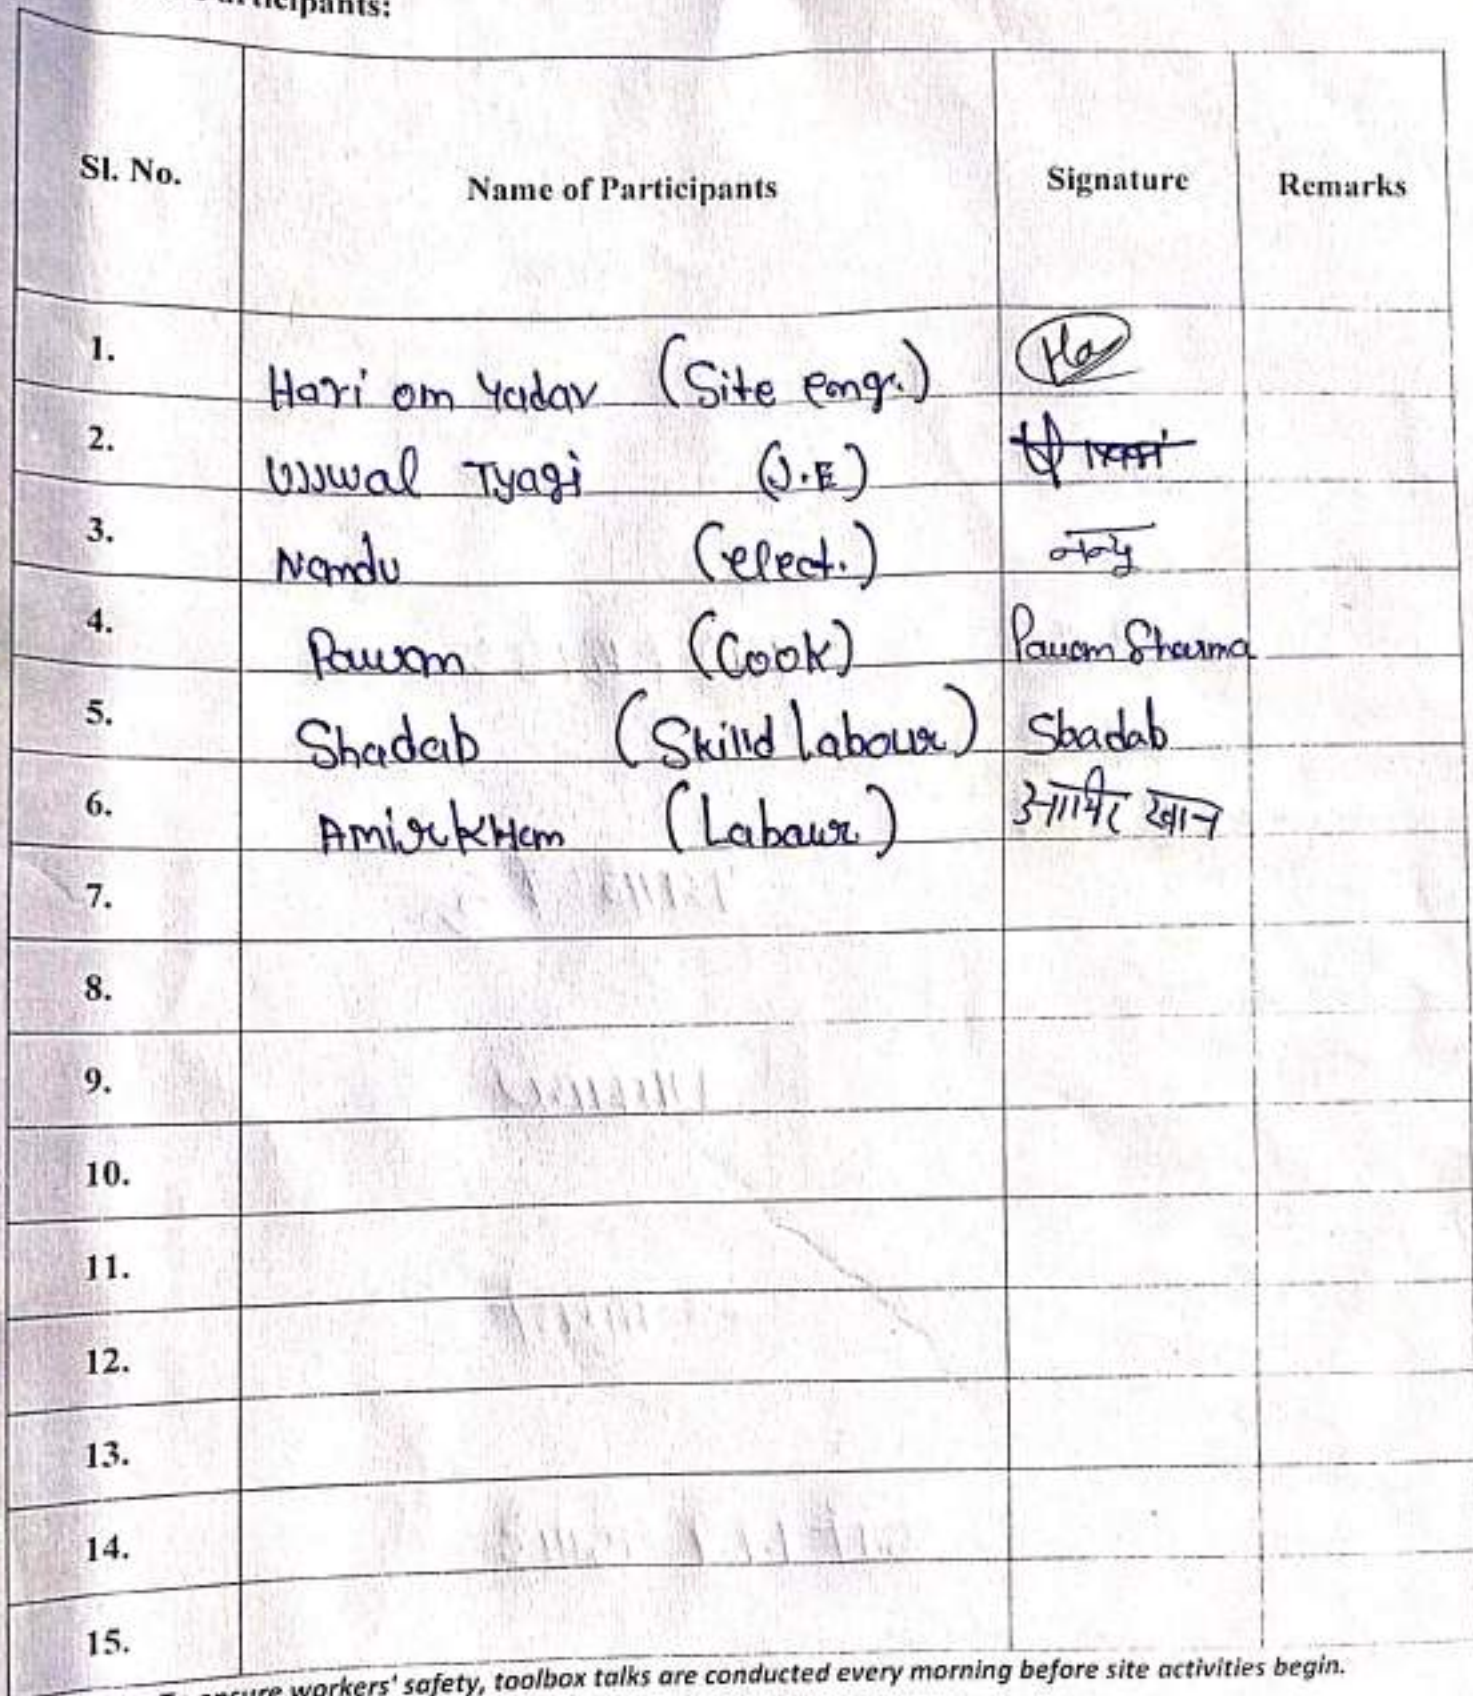 Participants:
Sl. No. Name of Participants Signature Remarks
1. Hari om Yadav (Site engr.)
2. Ujjwal Tyagi (J.E)
3. Nandu (elect.) नन्दु
4. Pawan (Cook) Pawan Sharma
5. Shadab (Skilld Labour) Shadab
6. Amir KHan (Labour) आमिर खान
7.
8.
9.
10.
11.
12.
13.
14.
15.
To ensure workers' safety, toolbox talks are conducted every morning before site activities begin.